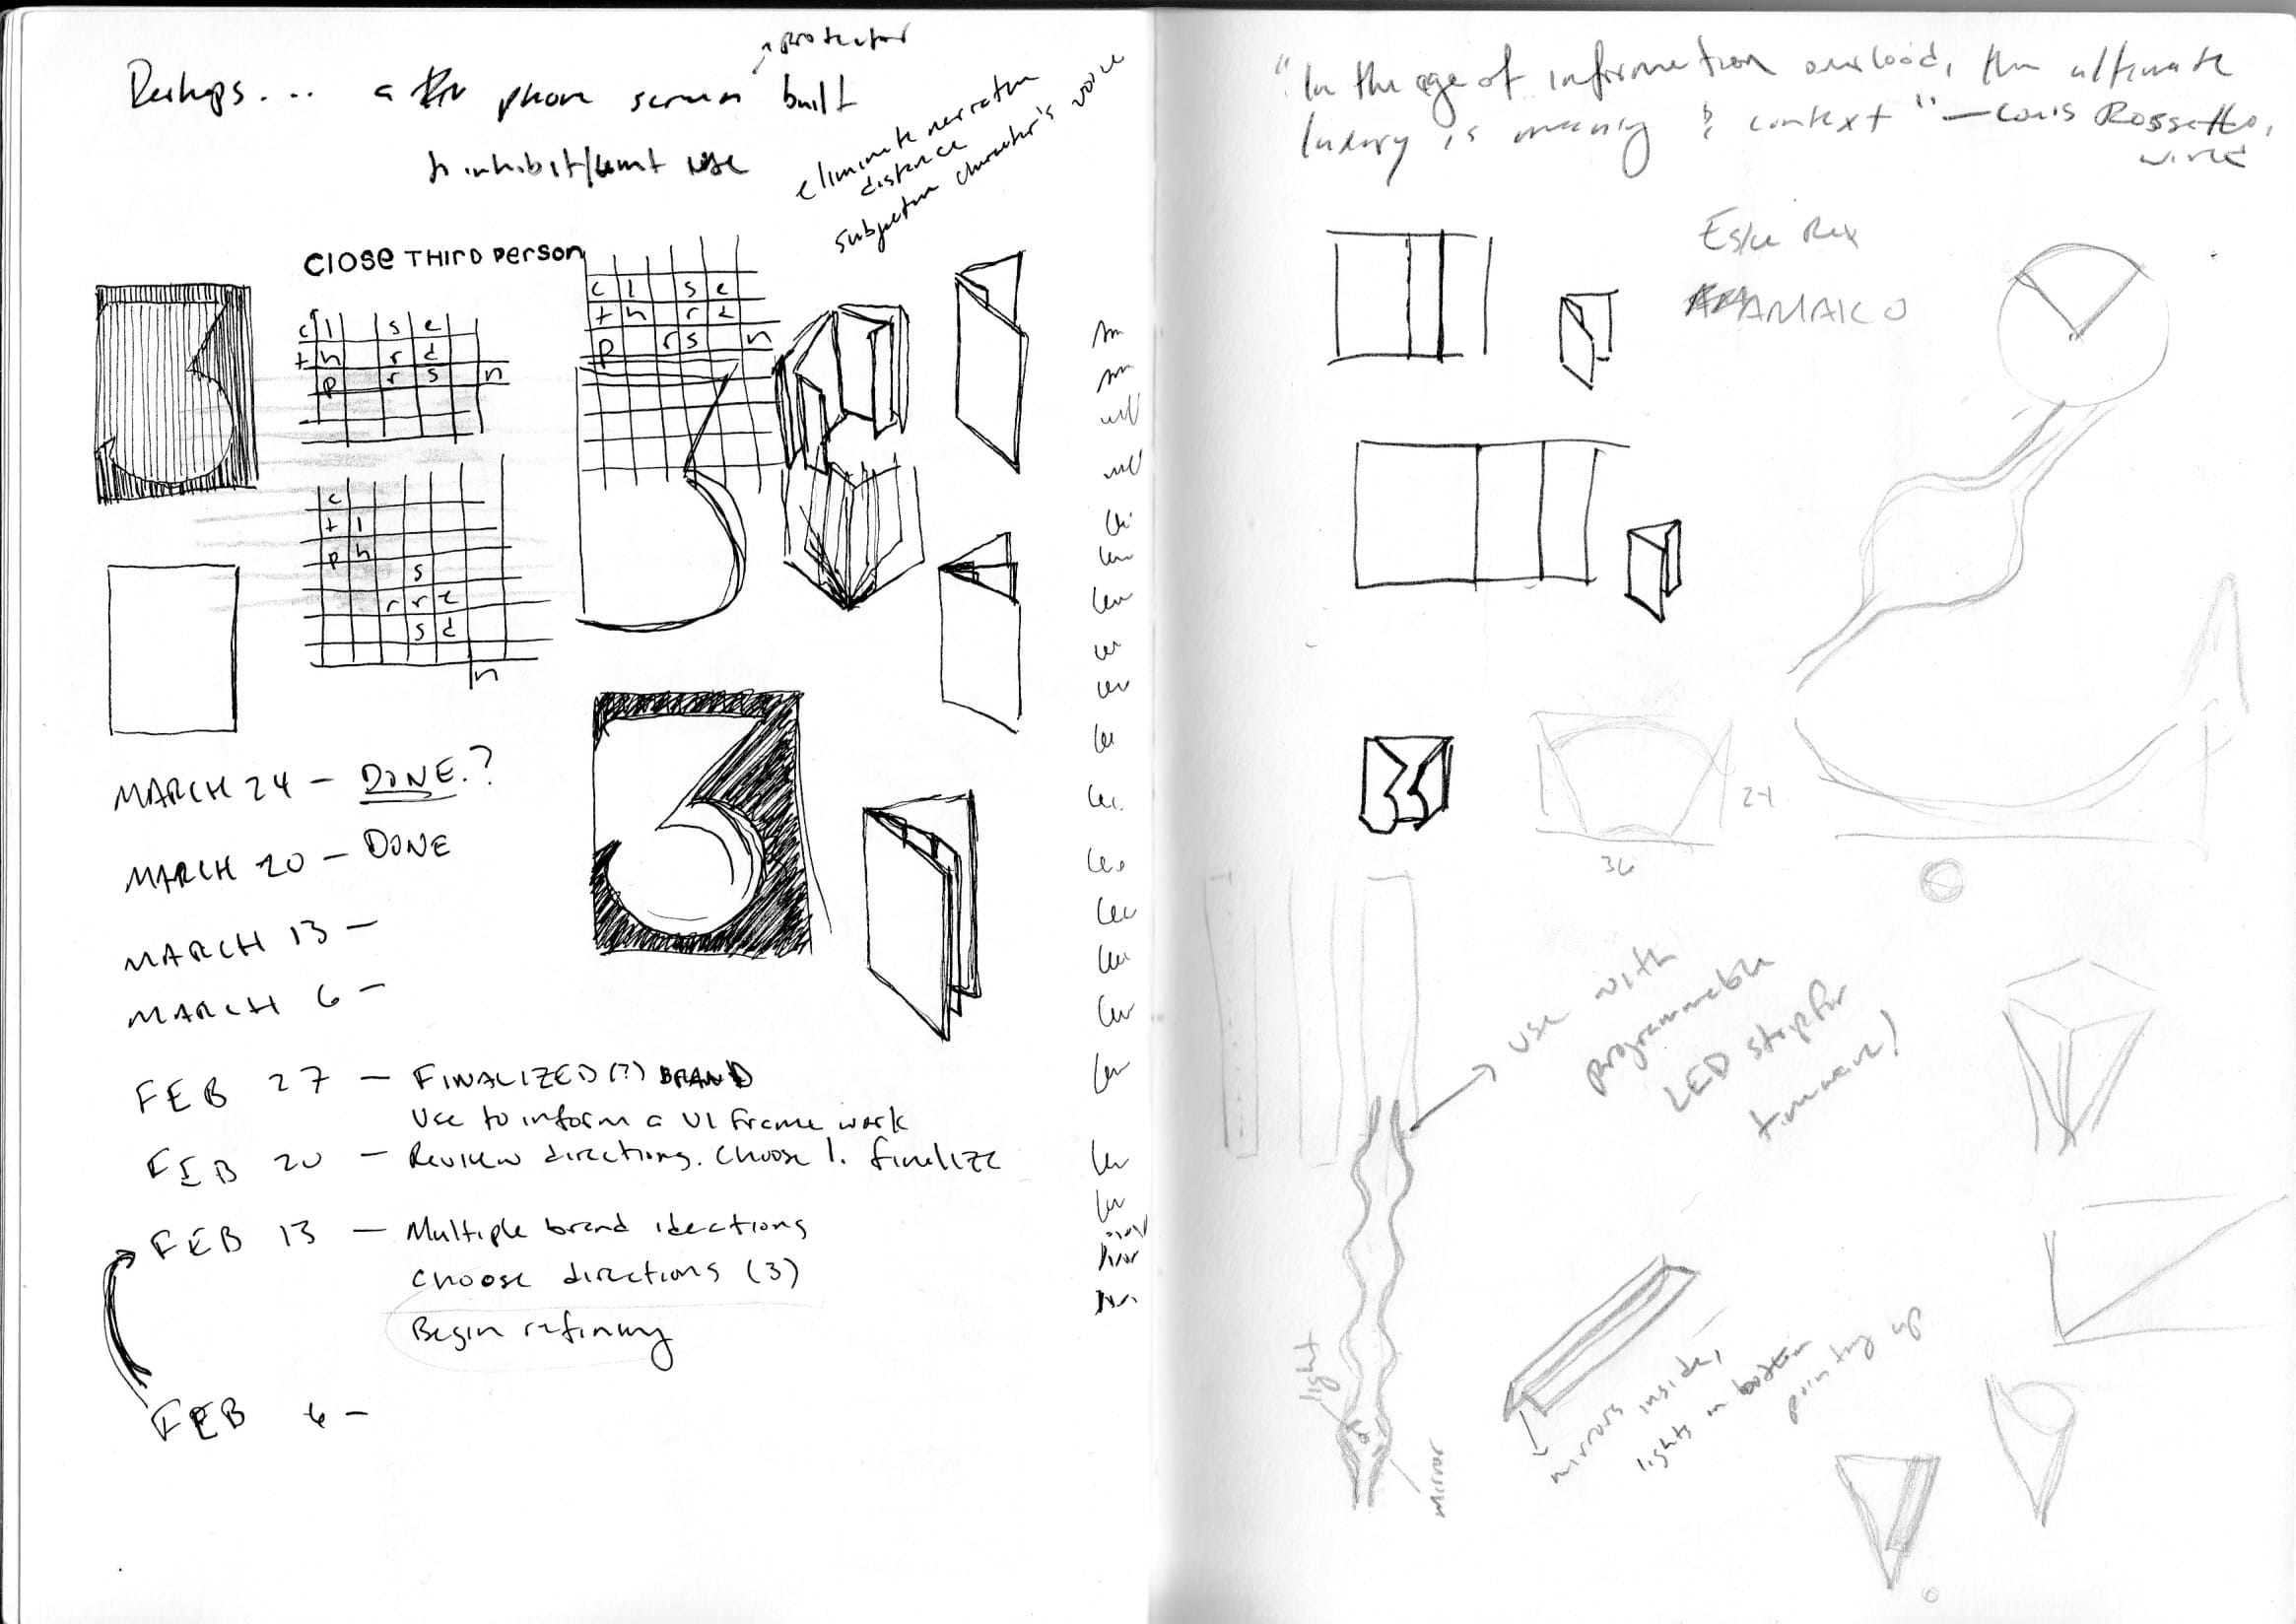 Perhaps... a phone screen built
protector
to inhibit/limit use
eliminate narrative
distance
subjective character's voice
CLOSE THIRD PERSON
c l s e
t h r d
p r s n
c l s e
t h r d
p r s n
c
t l
p h
s
r r e
s d
n
MARCH 24 - DONE.?
MARCH 20 - DONE
MARCH 13 -
MARCH 6 -
FEB 27 - FINALIZED(?) BRAND
Use to inform a UI frame work
FEB 20 - Review directions. Choose 1. finalize
FEB 13 - Multiple brand ideations
choose directions (3)
Begin refining
FEB 6 -
"In the age of information overload, the ultimate
luxury is meaning & context" - Louis Rossetto,
wired
Eske Rex
AMAICO
24
36
use with
programmable
LED strip for
light
mirror
mirrors inside,
lights on bottom
pointing up